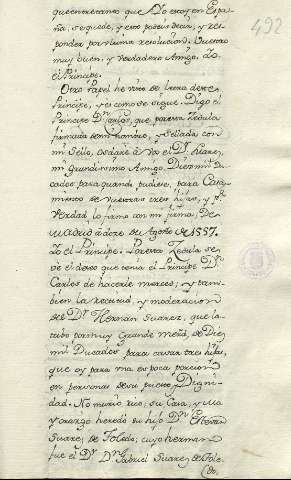 492
que entretanto que Yo estoy en Espa-
ña, se quede, y esto podeis decir, y res-
ponder por ultima resolucion. Vuestro
muy buen, y verdadero Amigo. Yo
el Principe.
Otro Papel he visto de letra de este
Principe, y es como se sigue. Digo el
Principe Dn. Carlos, que por esta Zedula
firmada de mi nombre, y Sellada con
mi Sello, os daré à Vos el Dr. Suarez,
mi Grandisimo Amigo, Diez mil Du-
cados para quando pudiere, para Casa-
miento de vuestras tres hijas, y
Verdad lo firmo con mi firma, De
Madrid à doze de Agosto de 1557.
Yo el Principe. Por esta Zedula se
vè el deseo que tenia el Principe Dn.
Carlos de hacerle merced; y tam-
bien la y moderacion
del Dr. Hernan Suarez, que la
tubo por muy Grande de Die-
mil Ducados para casar tres hijas,
que oy para una es poca porcion
en personas de su puesto, y Dig-
dad. No murio rico, su Casa, y
y mayorazgo heredó su hijo Dn.
Suarez de Toledo; cuyo hermano
fue el Dr. Dn. Gabriel Suarez de Tole-
do,